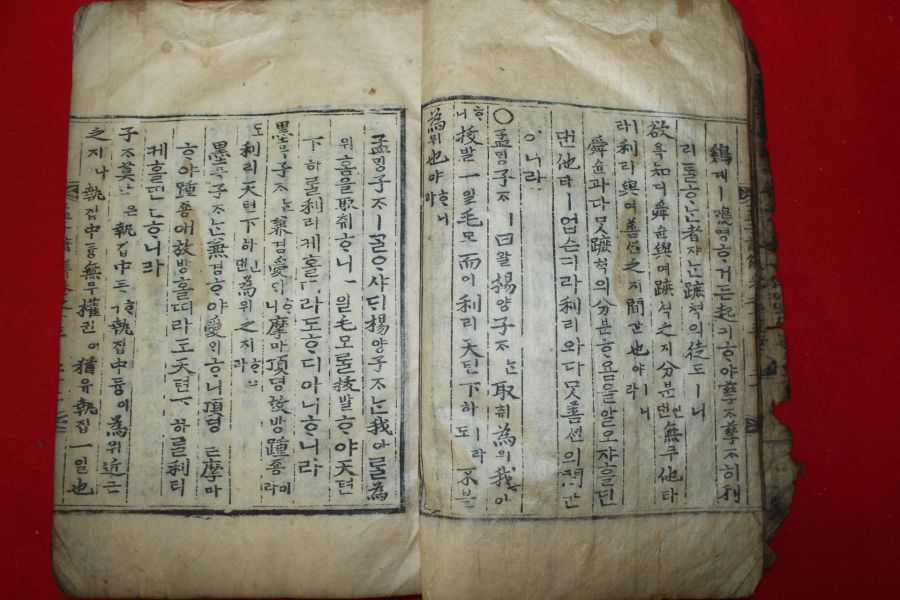 鷄계ㅣ鳴명ᄒᆞ거든起긔ᄒᆞ야孶ᄌᆞ孶ᄌᆞ히利
리ᄅᆞᆯᄒᆞᄂᆞᆫ者쟈ᄂᆞᆫ蹠쳑의徒도ㅣ니
欲욕知디舜슌與여蹠쳑之지分분인댄無무他타
라利리與여善션之지間간也야ㅣ니라
舜슌과다ᄆᆞᆺ蹠쳑의分분ᄒᆞ욤을알오쟈ᄒᆞᆯ딘
댄他타ㅣ업슨디라利리와다ᄆᆞᆺ善션의間간
이니라
○孟ᄆᆡᆼ子ᄌᆞㅣ曰왈楊양子ᄌᆞᄂᆞᆫ取취為위我아
ᄒᆞ니拔발一일毛모而이利리天텬下하도ㅣ라不블
為위也야ᄒᆞ니라
孟ᄆᆡᆼ子ᄌᆞㅣᄀᆞᆯᄋᆞ샤ᄃᆡ楊양子ᄌᆞᄂᆞᆫ我아ᄅᆞᆯ為
위홈을取취ᄒᆞ니一일毛모ᄅᆞᆯ拔발ᄒᆞ야天텬
下하ᄅᆞᆯ利리케홀ᄯᅵ라도ᄒᆞ디아니ᄒᆞ니라
墨믁子ᄌᆞᄂᆞᆫ兼겸愛ᄋᆡᄒᆞ니摩마頂뎡放방踵죵이라
도利리天텬下하인댄為위之지ᄒᆞ니라
墨믁子ᄌᆞᄂᆞᆫ兼겸ᄒᆞ야愛ᄋᆡᄒᆞ니頂뎡을摩마
ᄒᆞ야踵죵애放방홀ᄯᅵ라도天텬下하ᄅᆞᆯ利리
케홀딘댄ᄒᆞ니라
子ᄌᆞ莫막은執집中듕ᄒᆞ니執집中듕이為위近근
之지나執집中듕無무權권이猶유執집一일也